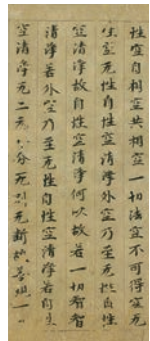 性空自相空共相空一切法空不可得空无
性空无性自性空清淨外空乃至无性自性
空清淨故自性空清淨何以故若一切智智
清淨若外空乃至无性自性空清淨若自性
空清淨无二无二分无別无斷故善現一